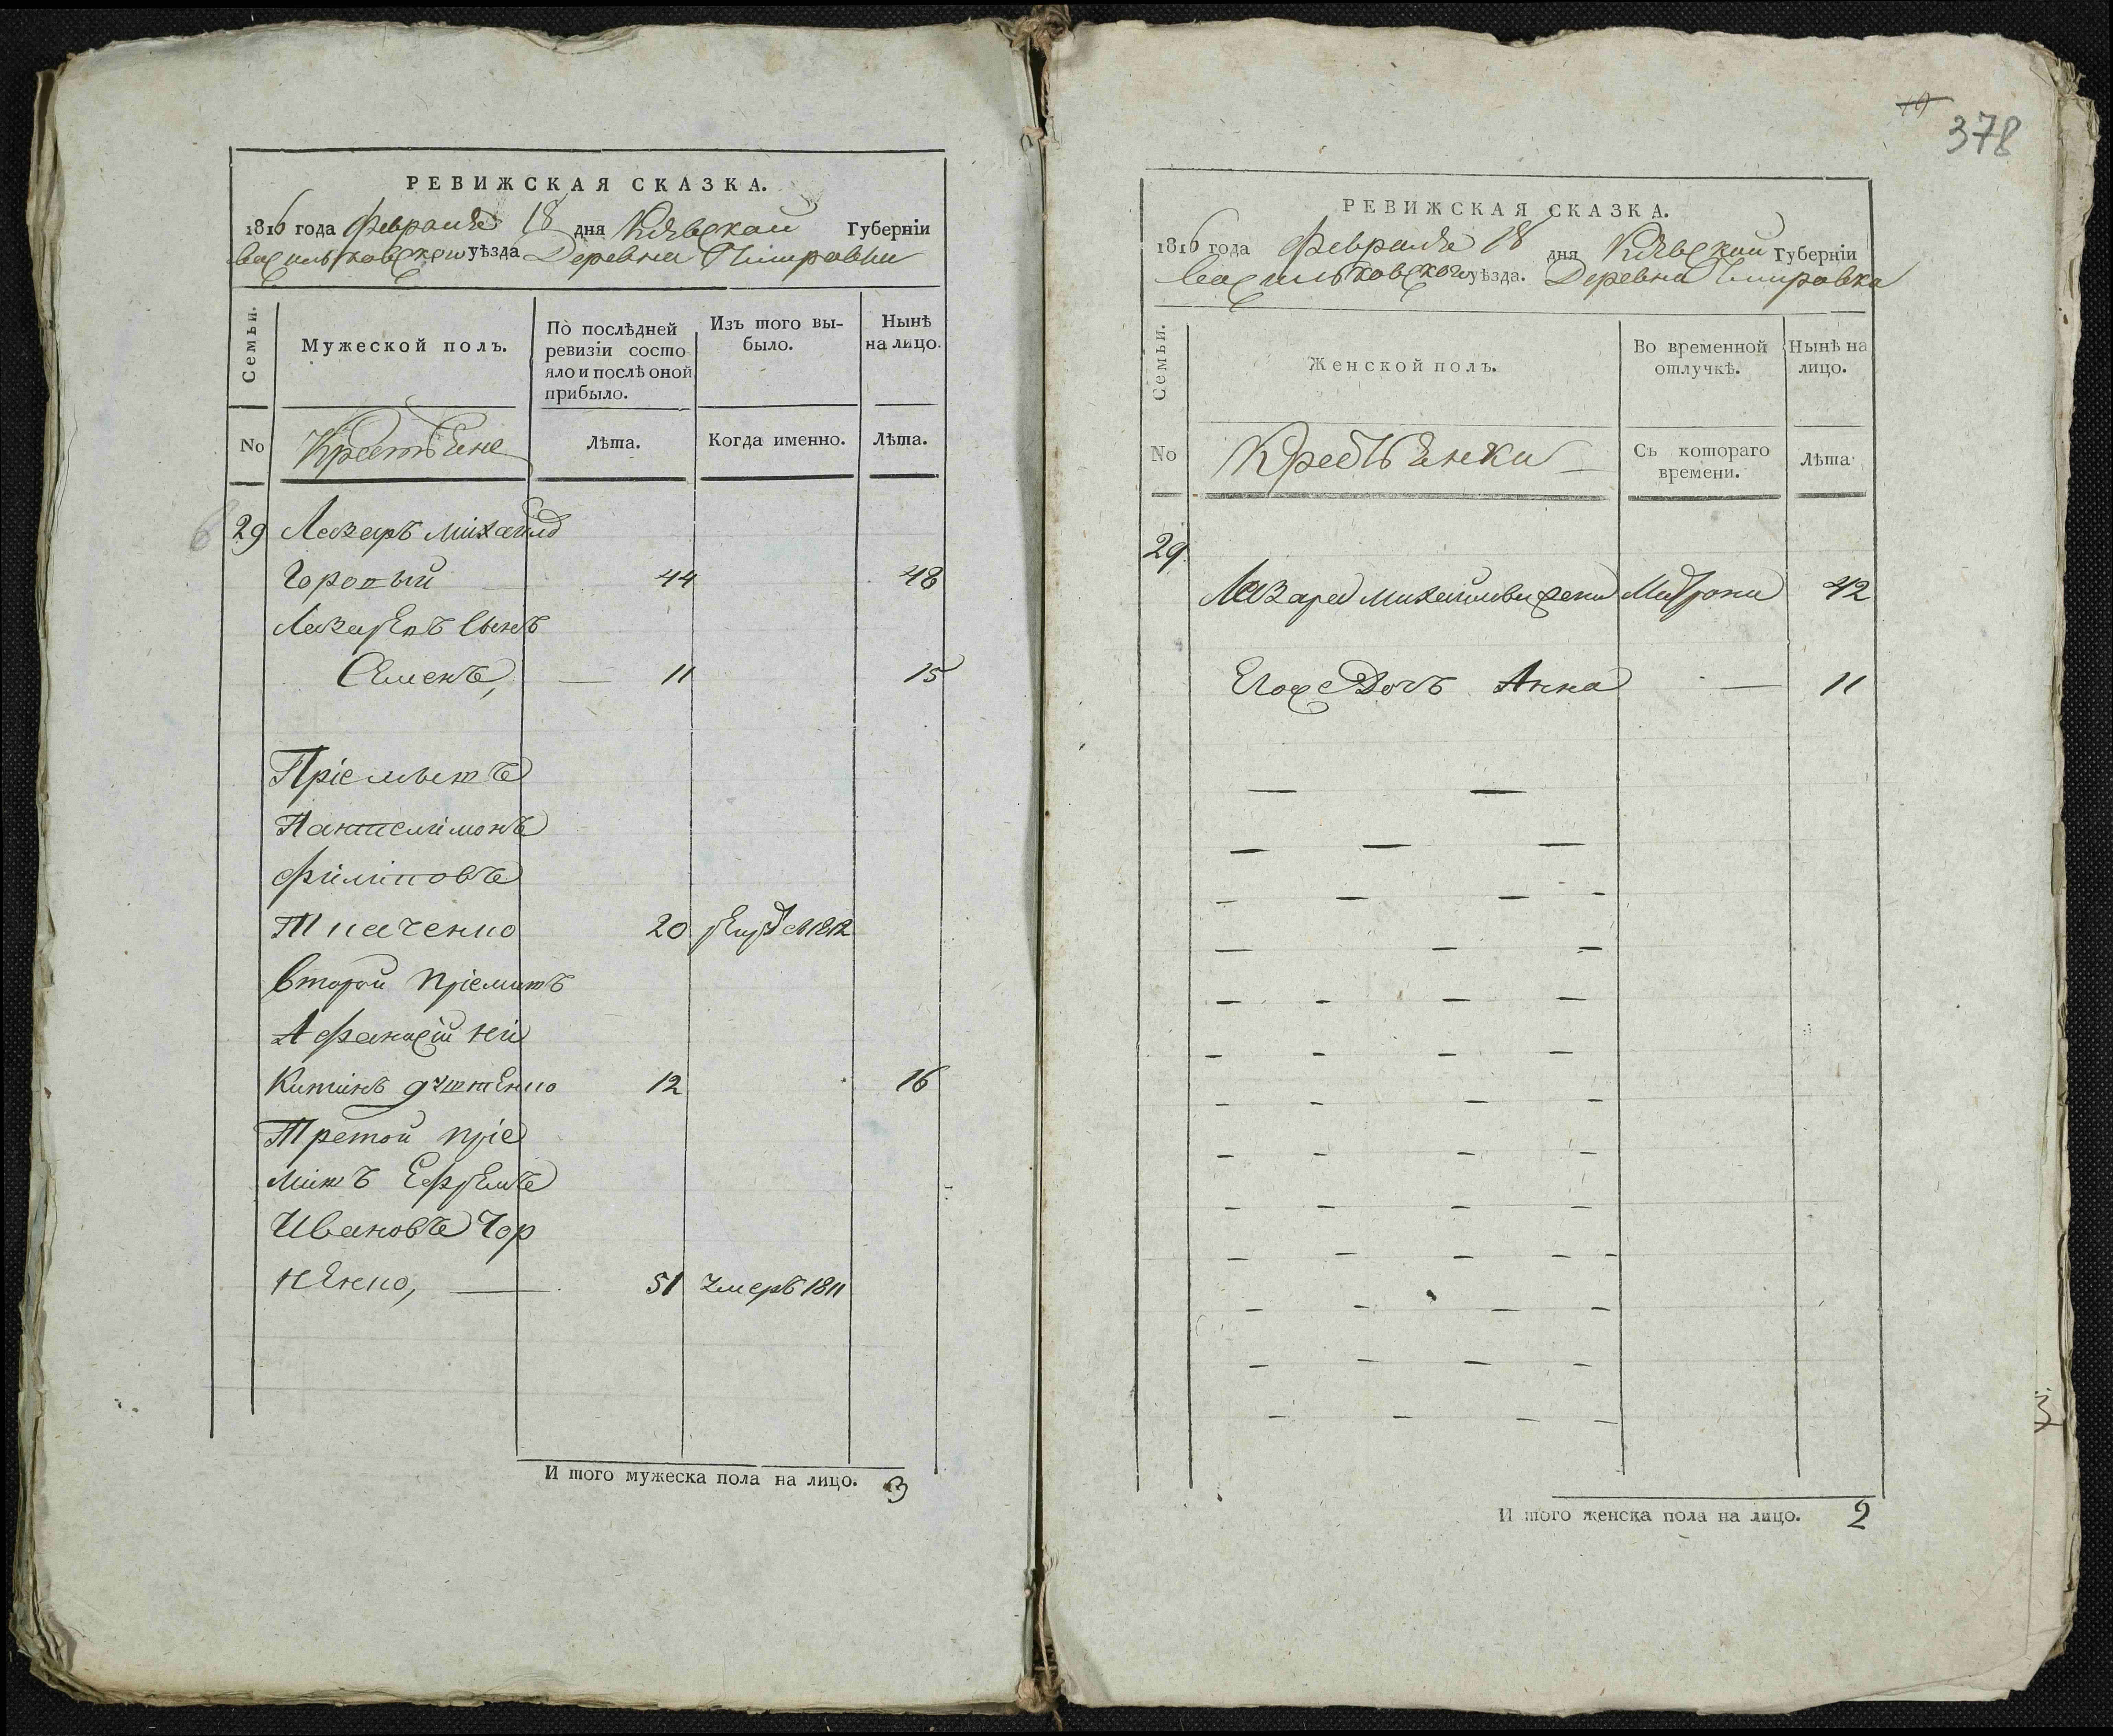 РЕВИЖСКАЯ СКАЗКА.
1816 года Февраля 18 дня Киевской Губерніи
васильковского уѣзда Деревни
Семьи.
Мужеской полъ.
По послѣдней ревизіи состояло и послѣ оной прибыло.
Изъ того выбыло.
Нынѣ на лицо.
No
Крестьяне
Лѣта.
Когда именно.
Лѣта.
29 Лазаръ Михайло
44 48
Лазаревъ сынъ
Семенъ, — 11 15
Пріемышъ
Пантелимонъ
Филиповъ
Ткаченко 20 1812
второй пріемишъ
Афанасій Ни
китинъ 12 16
Третой пріе
мишъ Ефремъ
Ивановъ Чор
ненко, — 51 умеръ 1811
И того мужеска пола на лицо. 3
378
РЕВИЖСКАЯ СКАЗКА.
1816 года Февраля 18 дня Киевской Губерніи
васильковского уѣзда. Деревня
Семьи.
Женской полъ.
Во временной отлучкѣ.
Нынѣ на лицо.
No
Крестьянки
Съ котораго времени.
Лѣта
29
Лазаря Михайлова жена Матрона 42
Его Дочь Анна — 11
И того женска пола на лицо. 2